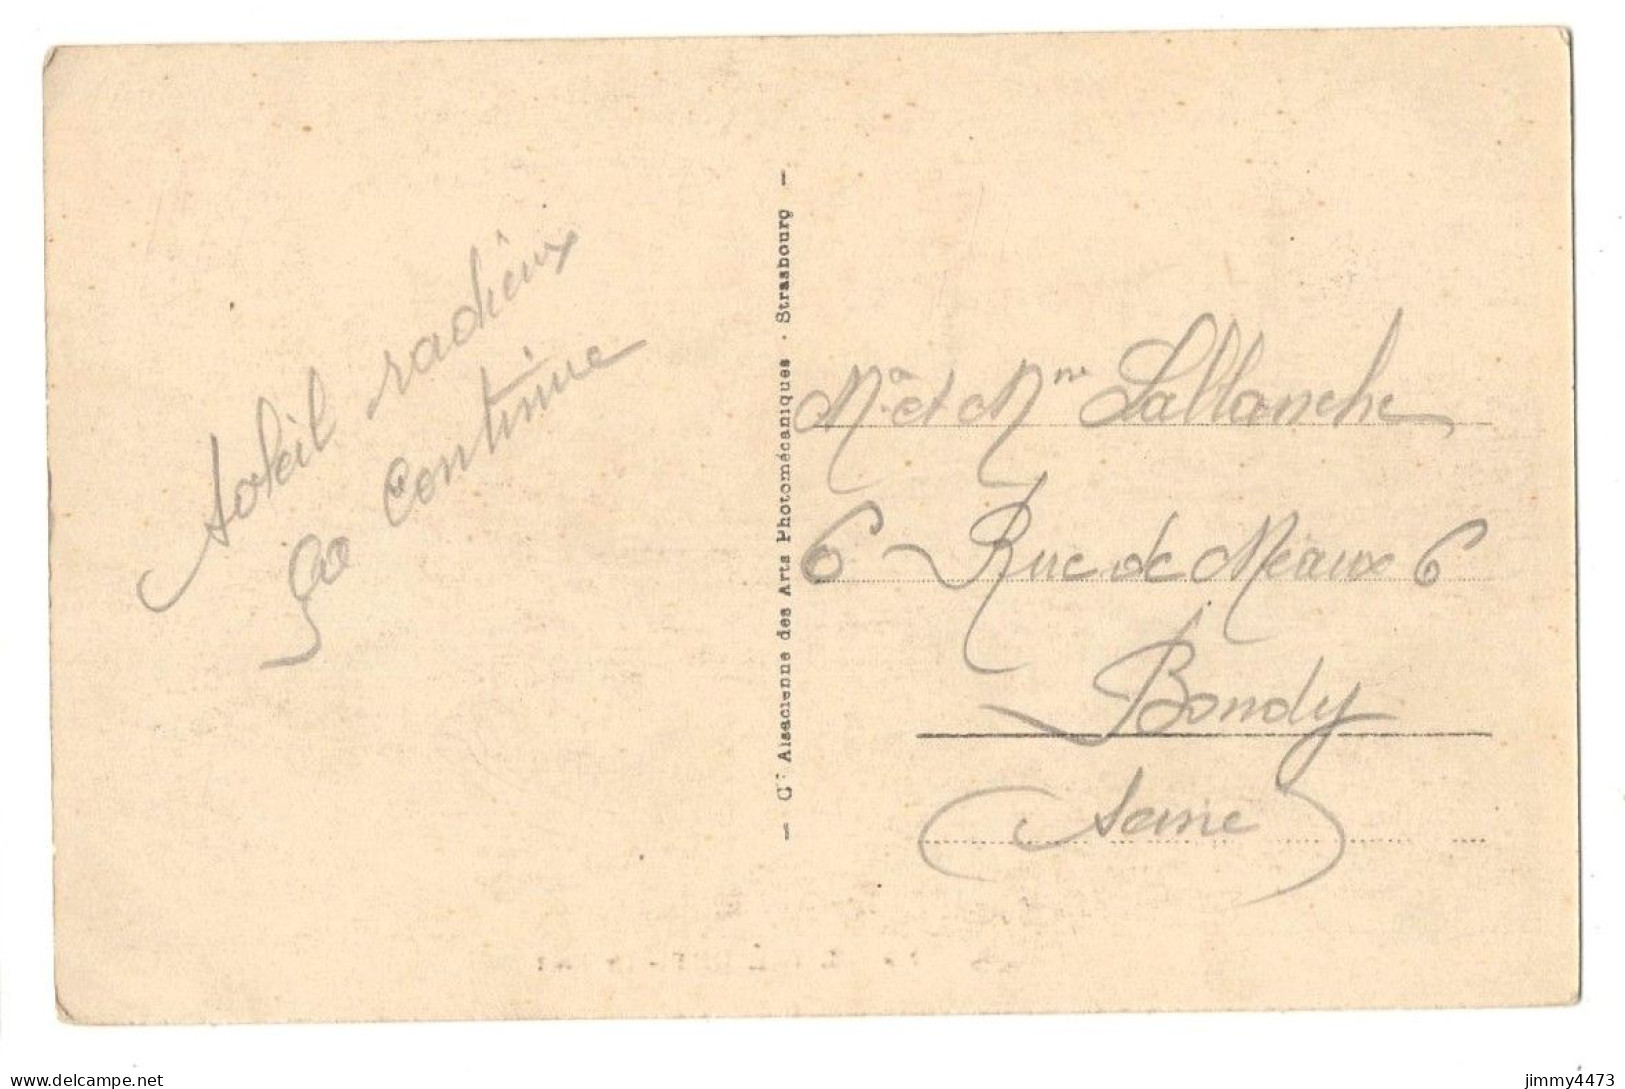 Soleil radieux
ça continue
— Cie Alsacienne des Arts Photomécaniques · Strasbourg —
Mr et Mme Lallanche
6 Rue de Meaux 6
Bondy
Seine
www.delcampe.net
jimmy4473